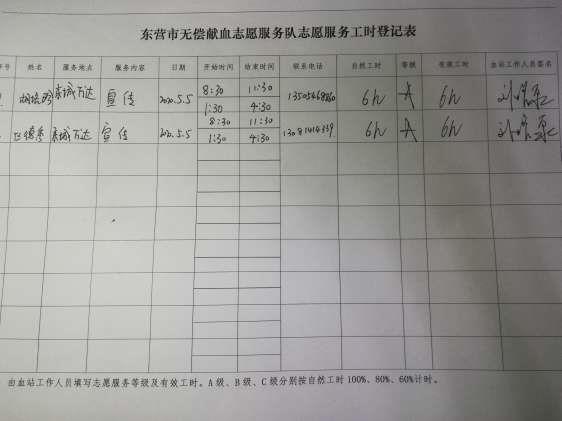 东营市无偿献血志愿服务队志愿服务工时登记表
序号 姓名 服务地点 服务内容 日期 开始时间 结束时间 联系电话 自然工时 等级 有效工时 血站工作人员签名
东城万达 宣传 2020.5.5 8:30 11:30 6h A 6h
1:30 4:30
东城万达 宣传 2020.5.5 8:30 11:30 6h A 6h
1:30 4:30
由血站工作人员填写志愿服务等级及有效工时。A级、B级、C级分别按自然工时100%、80%、60%计时。